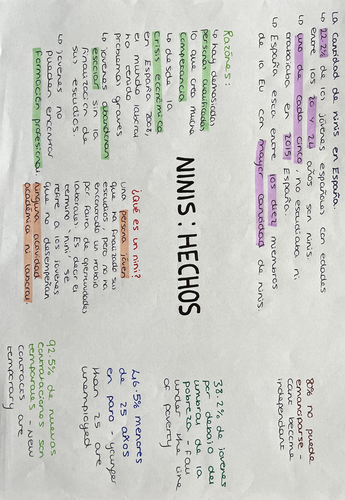 La cantidad de ninis en España
↳ 22.2% de los jóvenes españoles con edades
entre los 20 y 24 años son ninis.
↳ uno de cada cinco, no estudiaba ni
trabajaba en 2015 España.
↳ España está entre los diez miembros
de la EU con mayor cantidad de ninis.
Razones:
↳ hay demasiadas
personas cualificadas
lo que crea mucha
competencia
↳ desde la
crisis económica
en España 2008,
el mundo laboral
ha tenido
problemas graves
↳ jóvenes abandonan
escolar sin la
finalización de
sus estudios.
↳ jóvenes no
pueden encontrar
formación profesional
NINIS: HECHOS
¿Qué es un nini?
Una persona joven
que ha finalizado sus
estudios, pero no ha
encontrado un trabajo
por falta de oportunidades
laborales. Es decir, el
término 'nini' se
refiere a los jóvenes
que no desempeñan
ninguna actividad
académica ni laboral.
80% no puede
emanciparse -
cant become
independant
38.2% de jóvenes
por debajo del
umbral de la
pobreza - fall
under the line
of poverty
46.5% menores
de 25 años
en paro - younger
than 25 are
unemployed
92.5% de nuevas
contrataciones son
temporales - New
contracts are
temporary